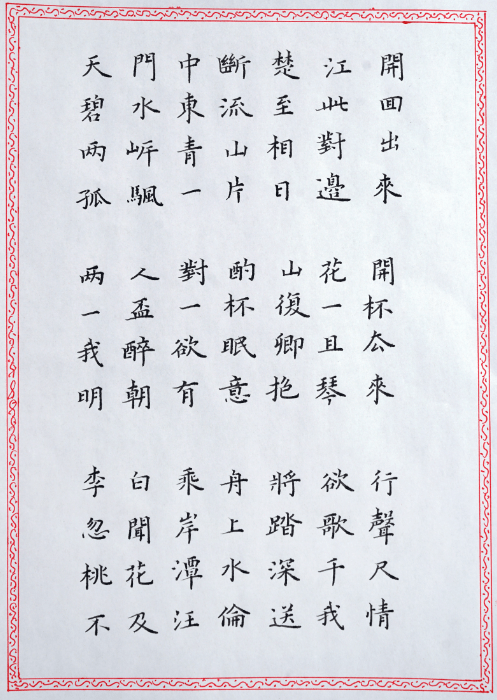 天門中斷楚江開
碧水東流至此囬
两岸青山相對出
孤颿一片日邊來
两人對酌山花開
一盃一杯復一杯
我醉欲眠卿且厺
明朝有意抱琴來
李白乘舟將欲行
忽聞岸上踏歌聲
桃花潭水深千尺
不及汪倫送我情